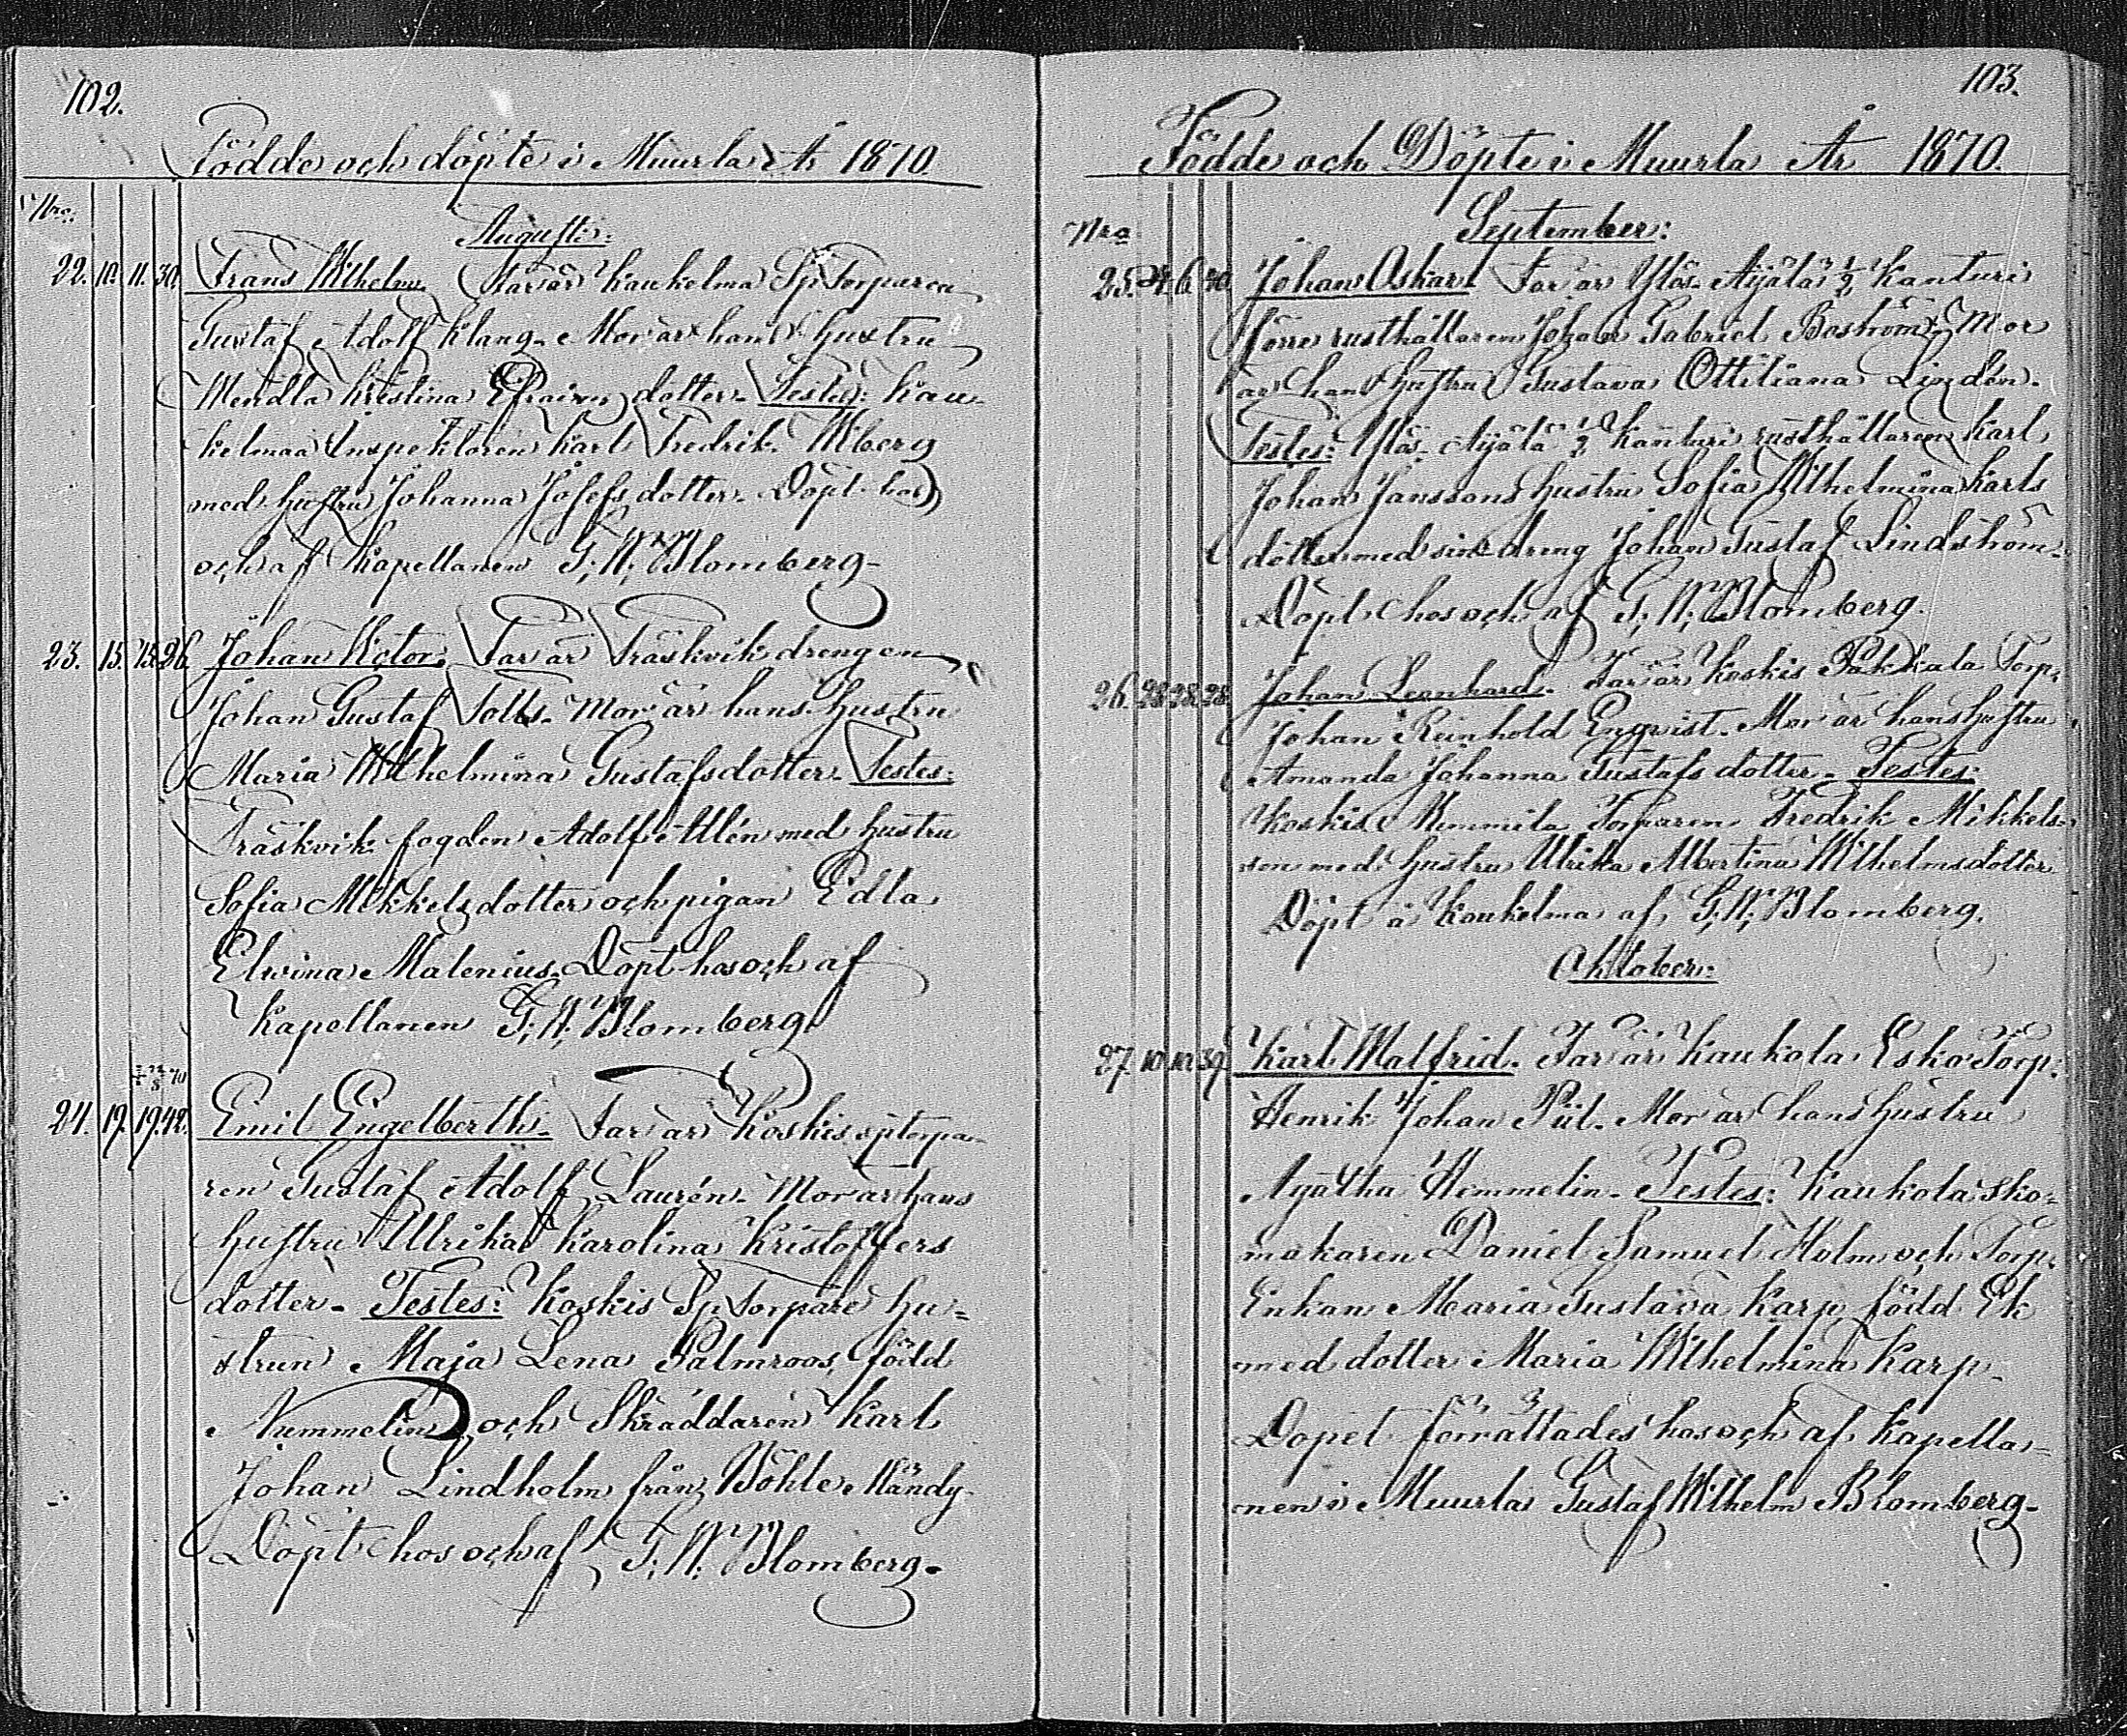 102.
Födde och döpte i Muurla År 1870.
Nro.
Augusti:
22. 10. 11. 30. Frans Wilhelm. Far är Kaukelma Sp. Torparen
Gustaf Adolf Klang. Mor är hans hustru
Wendla Kristina Efraims dotter. Testes: Kau-
kelmaa Inspektoren Karl Fredrik Wiberg
med hustru Johanna Josefsdotter. Döpt hos
och af Kapellanen G; W; Blomberg.
23. 15. 15. 26. Johan Victor. Far är Träskvik drengen
Johan Gustaf Mor är hans hustru
Maria Wilhelmina Gustafsdotter. Testes:
Träskvik fogden Adolf Allén med hustru
Sofia Mikkelsdotter och pigan Edla
Elvina Malenius. Döpt hos och af
Kapellanen G; W; Blomberg.
24. 19. 19. 42. Emil Engelberth. Far är Koskis sp torpa-
ren Gustaf Adolf Laurén. Mor är hans
hustru Ulrika Karolina Kristoffers
dotter. Testes: Koskis Sp Torpare hu-
strun Maja Lena Palmroos, född
Nummelin och Skräddaren Karl
Johan Lindholm från Böhle Mändy.
Döpt hos och af G; W; Blomberg.
103.
Födde och Döpte i Muurla År 1870.
Nro
September:
25. 6. Johan Oskar. Far är Ylös-Aijälä ½ Kanturi
förre rusthållaren Johan Gabriel Boström, Mor
är hans hustru Gustava Ottiliana Lindén.
Testes: Ylös-Aijälä ½ Kanturi rusthållaren Karl
Johan Janssons hustru Sofia Wilhelmina Karls
dotter med sin dreng Johan Gustaf Lindström.
Döpt hos och af G; W; Blomberg.
26. 28. 28. 28. Johan Leonhard. Far är Koskis Pakkala Torp.
Johan Reinhold Enqvist. Mor är hans hustru
Amanda Johanna Gustafs dotter. Testes:
Koskis Memmila Torparen Fredrik Mikkels-
son med hustru Ulrika Albertina Wilhelmsdotter
Döpt å Kaukelma af G; W; Blomberg.
Oktober:
27. 10. 10. 39. Karl Malfrid. Far är Kaukola Esko Torp.
Henrik Johan Piil. Mor är hans hustru
Agatha Hemmelin. Testes: Kaukola sko-
makaren Daniel Samuel Holm och Torp.
Enkan Maria Gustava Karp, född Ek
med dotter Maria Wilhelmina Karp.
Dopet förrättades hos och af Kapella-
nen i Muurla Gustaf Wilhelm Blomberg.